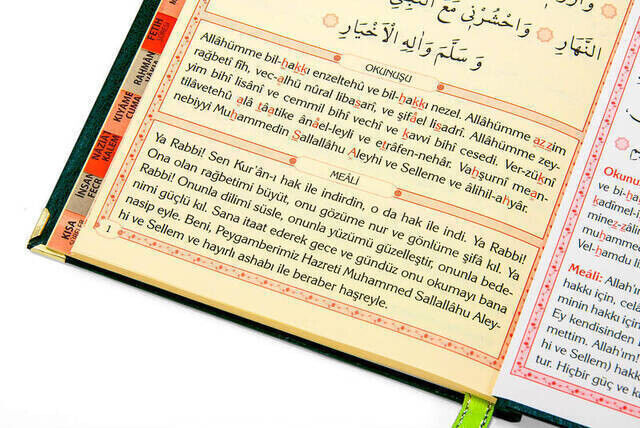 النَّهَارِ ۞ وَاحْشُرْنِي مَعَ النَّبِيِّ
وَسَلَّمَ وَاٰلِهِ الْاَخْيَارِ
OKUNUŞU
Allâhümme bil-hakkı enzeltehû ve bil-hakkı nezel. Allâhümme azzim
rağbetî fîh, vec-alhü nûral libasarî, ve şifâel lisadrî. Allâhümme zey-
yim bihî lisânî ve cemmil bihî vechî ve kavvi bihî cesedî. Ver-züknî
tilâvetehû alâ tââtike ânâel-leyli ve etrâfen-nehâr. Vahşurnî mean-
nebiyyi Muhammedin Sallallâhu Aleyhi ve Selleme ve âlihil-ahyâr.
MEÂLİ
Ya Rabbi! Sen Kur'ân-ı hak ile indirdin, o da hak ile indi. Ya Rabbi!
Ona olan rağbetimi büyüt, onu gözüme nur ve gönlüme şifâ kıl. Ya
Rabbi! Onunla dilimi süsle, onunla yüzümü güzelleştir, onunla bede-
nimi güçlü kıl. Sana itaat ederek gece ve gündüz onu okumayı bana
nasip eyle. Beni, Peygamberimiz Hazreti Muhammed Sallallâhu Aley-
hi ve Sellem ve hayırlı ashabı ile beraber haşreyle.
1
FETİH
RAHMÂN
KIYÂME
CUMA
NÂZİAT
KALEM
İNSAN
FECR
KISA
Okunu
ve bi-h
kadîmel
minez-zâli
muhamme
Vel-hamdu l
Meâli: Allah'ım
hakkı için, cel
minin hakkı içi
Ey kendisinden
mettim. Allah'ım!
hi ve Sellem) hakk
tur. Hiçbir güç ve k